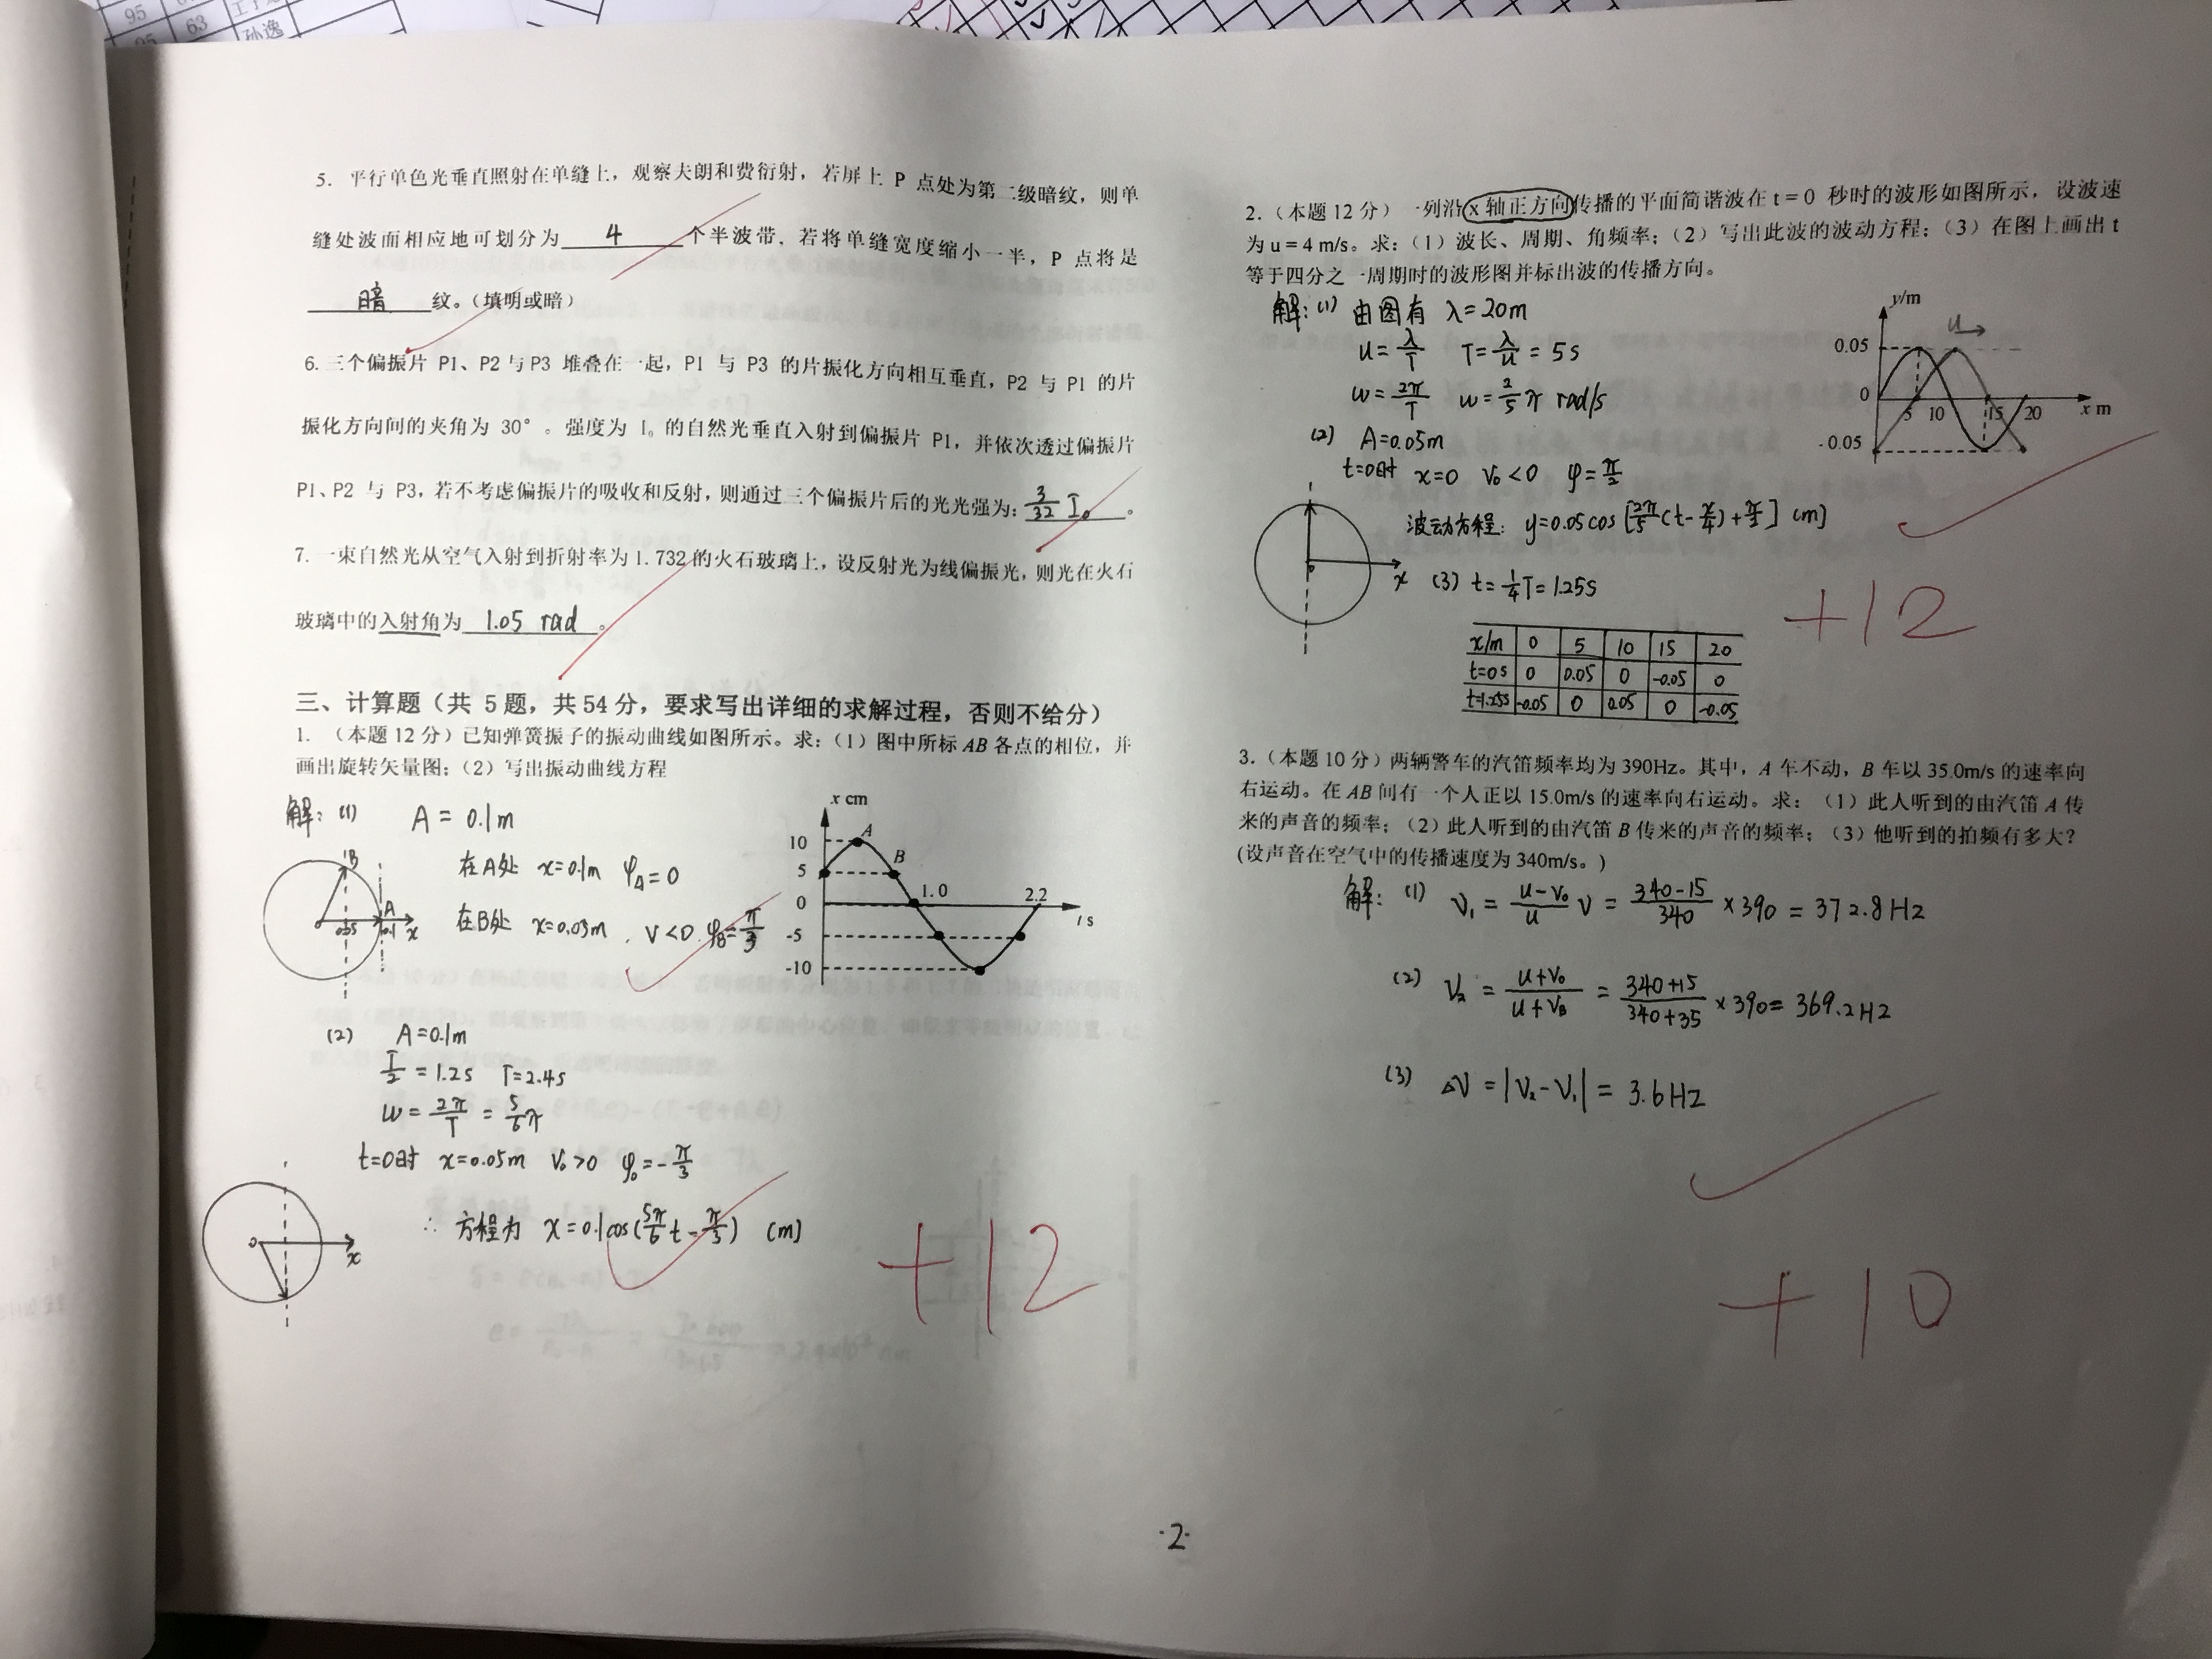 5. 平行单色光垂直照射在单缝上，观察夫朗和费衍射，若屏上 P 点处为第二级暗纹，则单
缝处波面相应地可划分为 4 个半波带，若将单缝宽度缩小一半，P 点将是
暗 纹。（填明或暗）
6. 三个偏振片 P1、P2 与 P3 堆叠在一起，P1 与 P3 的片振化方向相互垂直，P2 与 P1 的片
振化方向间的夹角为 30°。强度为 I。的自然光垂直入射到偏振片 P1，并依次透过偏振片
P1、P2 与 P3，若不考虑偏振片的吸收和反射，则通过三个偏振片后的光光强为：3/32 I₀ 。
7. 一束自然光从空气入射到折射率为 1.732 的火石玻璃上，设反射光为线偏振光，则光在火石
玻璃中的入射角为 1.05 rad 。
三、计算题（共 5 题，共 54 分，要求写出详细的求解过程，否则不给分）
1. （本题 12 分）已知弹簧振子的振动曲线如图所示。求：（1）图中所标 AB 各点的相位，并
画出旋转矢量图；（2）写出振动曲线方程
解：(1) A = 0.1m
在A处 x=0.1m φA=0
在B处 x=0.05m , V<0. φB=π/3
O B A x
0.05 0.1
x cm
10
5
0
-5
-10
A
B
1.0
2.2
t s
(2) A=0.1m
T/2 = 1.2s T=2.4s
ω = 2π/T = 5/6 π
t=0时 x=0.05m V₀>0 φ₀=-π/3
∴ 方程为 x=0.1cos(5π/6 t - π/3) (m)
O x
+12
2. （本题 12 分）一列沿 x 轴正方向传播的平面简谐波在 t = 0 秒时的波形如图所示，设波速
为 u = 4 m/s。求：（1）波长、周期、角频率；（2）写出此波的波动方程；（3）在图上画出 t
等于四分之一周期时的波形图并标出波的传播方向。
解：(1) 由图有 λ=20m
u=λ/T T=λ/u = 5s
ω=2π/T ω=2/5 π rad/s
(2) A=0.05m
t=0时 x=0 V₀<0 φ=π/2
波动方程：y=0.05cos[2π/5(t-x/4)+π/2] (m)
O x
(3) t=1/4T=1.25s
x/m 0 5 10 15 20
t=0s 0 0.05 0 -0.05 0
t=1.25s -0.05 0 0.05 0 -0.05
y/m
0.05
0
-0.05
5 10 15 20
x m
u
+12
3.（本题 10 分）两辆警车的汽笛频率均为 390Hz。其中，A 车不动，B 车以 35.0m/s 的速率向
右运动。在 AB 间有一个人正以 15.0m/s 的速率向右运动。求：（1）此人听到的由汽笛 A 传
来的声音的频率；（2）此人听到的由汽笛 B 传来的声音的频率；（3）他听到的拍频有多大？
（设声音在空气中的传播速度为 340m/s。）
解：(1) ν₁ = (u-V₀)/u ν = (340-15)/340 ×390 = 372.8Hz
(2) ν₂ = (u+V₀)/(u+VB) = (340+15)/(340+35) ×390 = 369.2Hz
(3) Δν = |ν₂-ν₁| = 3.6Hz
+10
·2·
95
63
孙逸